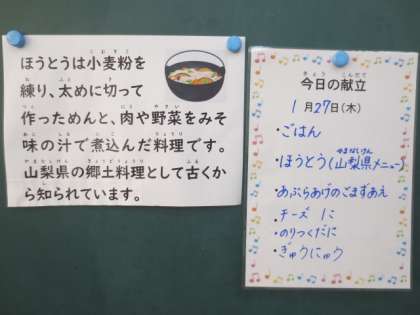 ほうとうは小麦粉を
練り、太めに切って
作っためんと、肉や野菜をみそ
味の汁で煮込んだ料理です。
山梨県の郷土料理として古くか
ら知られています。
今日の献立
1月27日(木)
・ごはん
・ほうとう(山梨県メニュー)
・あぶらあげのごまずあえ
・チーズ 1こ
・のりつくだに
・ぎゅうにゅう